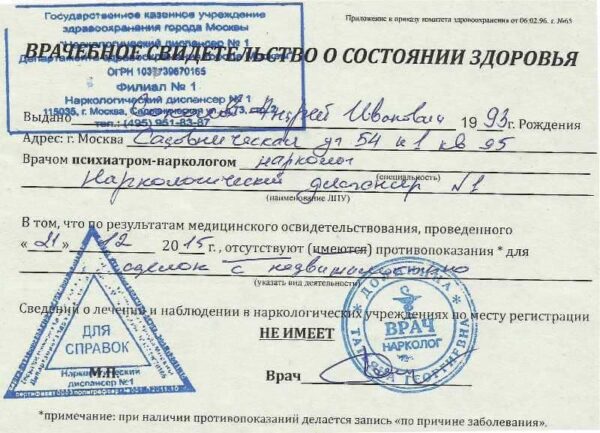 Приложение к приказу комитета здравоохранения от 06.02.96. г. №65
Государственное казенное учреждение
здравоохранения города Москвы
"Наркологический диспансер № 1
Департамента здравоохранения города Москвы"
ОГРН 1037739670165
Филиал № 1
Наркологический диспансер № 1
115035, г. Москва, Садовническая ул., 73,
тел.: (495) 951-83-87
ВРАЧЕБНОЕ СВИДЕТЕЛЬСТВО О СОСТОЯНИИ ЗДОРОВЬЯ
Выдано Андрей Иванович 1993г. Рождения
Адрес: г. Москва Садовническая 54 к1 кв 95
Врачом психиатром-наркологом нарколог
(специальность)
Наркологический диспансер №1
(наименование ЛПУ)
В том, что по результатам медицинского освидетельствования, проведенного
«21» 12 2015г., отсутствуют (имеются) противопоказания * для
сделок с недвижимостью
(указать вид деятельности)
Сведений о лечении и наблюдении в наркологических учреждениях по месту регистрации
НЕ ИМЕЕТ
ДЛЯ
СПРАВОК
Наркологический
диспансер №1
М.П.
ВРАЧ
НАРКОЛОГ
ТАТЬЯНА
Врач
*примечание: при наличии противопоказаний делается запись «по причине заболевания».